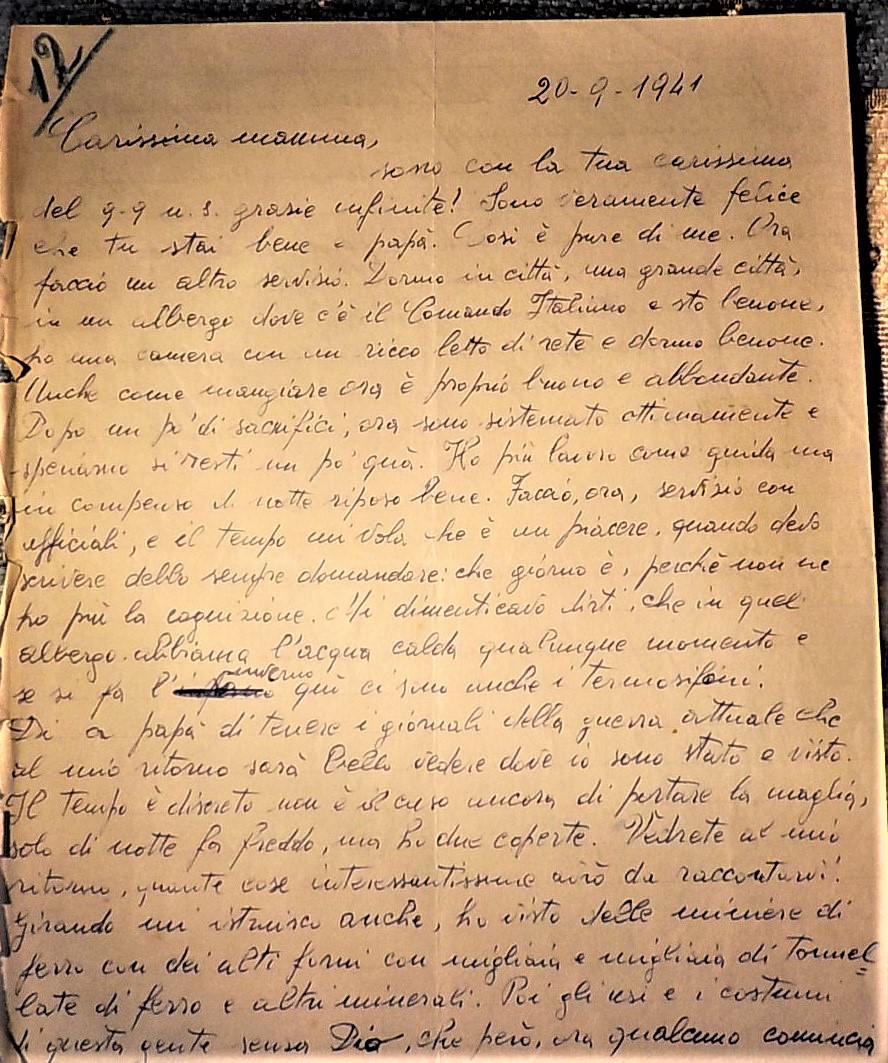 12
20-9-1941
Carissima mamma,
sono con la tua carissima
del 9-9 u.s. grazie infinite! Sono veramente felice
che tu stai bene e papà. Così è pure di me. Ora
faccio un altro servizio. Dormo in città, una grande città,
in un albergo dove c'è il Comando Italiano e sto benone,
ho una camera con un ricco letto di rete e dormo benone.
Anche come mangiare ora è proprio buono e abbondante.
Dopo un po' di sacrifici, ora sono sistemato ottimamente e
speriamo si resti un po' quà. Ho più lavoro come guida ma
in compenso di notte riposo bene. Faccio, ora, servizio con
ufficiali, e il tempo mi vola che è un piacere, quando devo
scrivere debbo sempre domandare: che giorno è, perchè non ne
ho più la cognizione. Mi dimenticavo dirti, che in quel
albergo abbiamo l'acqua calda qualunque momento e
se si fa l'inverno quì ci sono anche i termosifoni.
Di a papà di tenere i giornali della guerra attuale che
al mio ritorno sarà bello vedere dove io sono stato e visto.
Il tempo è discreto non è il caso ancora di portare la maglia,
solo di notte fa freddo, ma ho due coperte. Vedrete al mio
ritorno, quante cose interessantissime avrò da raccontarvi!
Girando mi istruisco anche, ho visto delle miniere di
ferro con dei alti forni con migliaia e migliaia di tonnel=
late di ferro e altri minerali. Poi gli usi e i costumi
di questa gente senza Dio, che però, ora qualcuno comincia